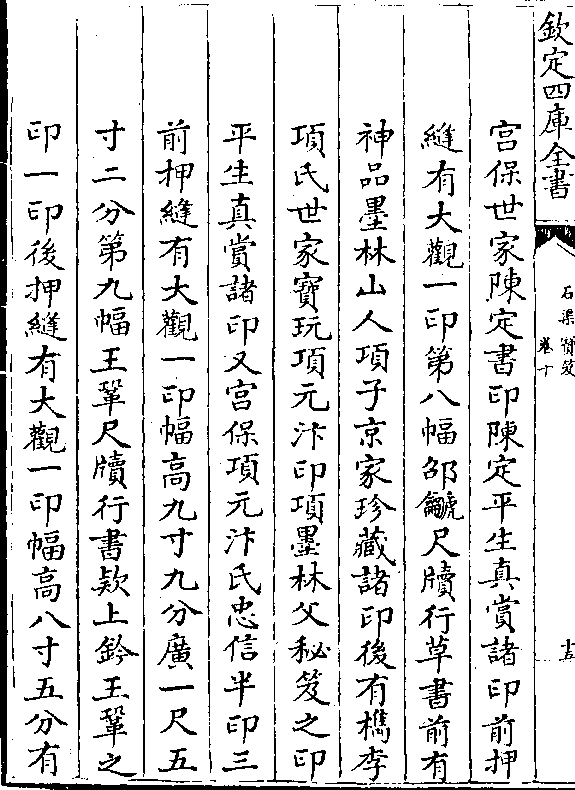 欽定四庫全書
石渠寶笈
卷十
十五
宫保世家陳定書印陳定平生真賞諸印前押
縫有大觀一印第八幅邵䶵尺牘行草書前有
神品墨林山人項子京家珍藏諸印後有檇李
項氏世家寶玩項元汴印項墨林父秘笈之印
平生真賞諸印又宫保項元汴氏忠信半印三
前押縫有大觀一印幅高九寸九分廣一尺五
寸二分第九幅王鞏尺牘行書欵上鈐王鞏之
印一印後押縫有大觀一印幅高八寸五分有